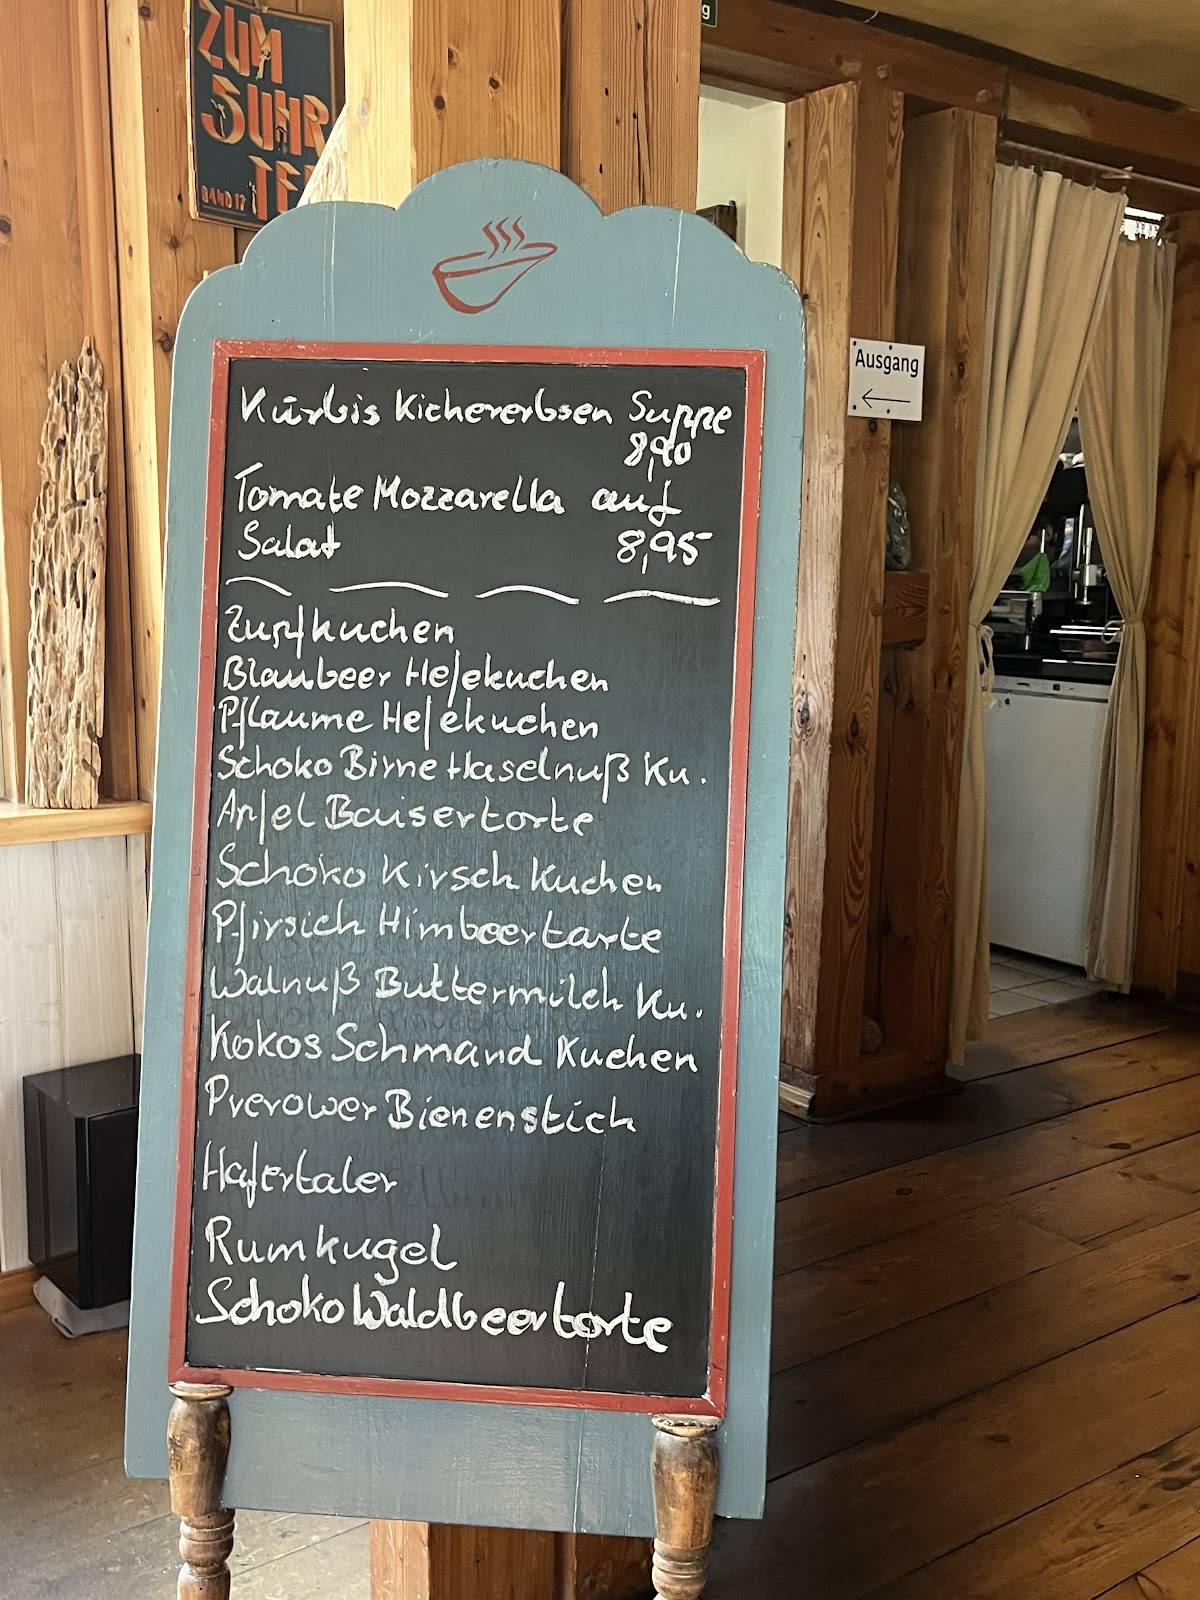 ZUM
5UHR
TEE
BAND 17
g
Ausgang
Kürbis Kichererbsen Suppe
8,90
Tomate Mozzarella auf
Salat 8,95
Zupfkuchen
Blaubeer Hefekuchen
Pflaume Hefekuchen
Schoko Birne Haselnuß Ku.
Apfel Baisertorte
Schoko Kirsch Kuchen
Pfirsich Himbeertarte
Walnuß Buttermilch Ku.
Kokos Schmand Kuchen
Prerower Bienenstich
Hafertaler
Rumkugel
Schoko Waldbeertorte